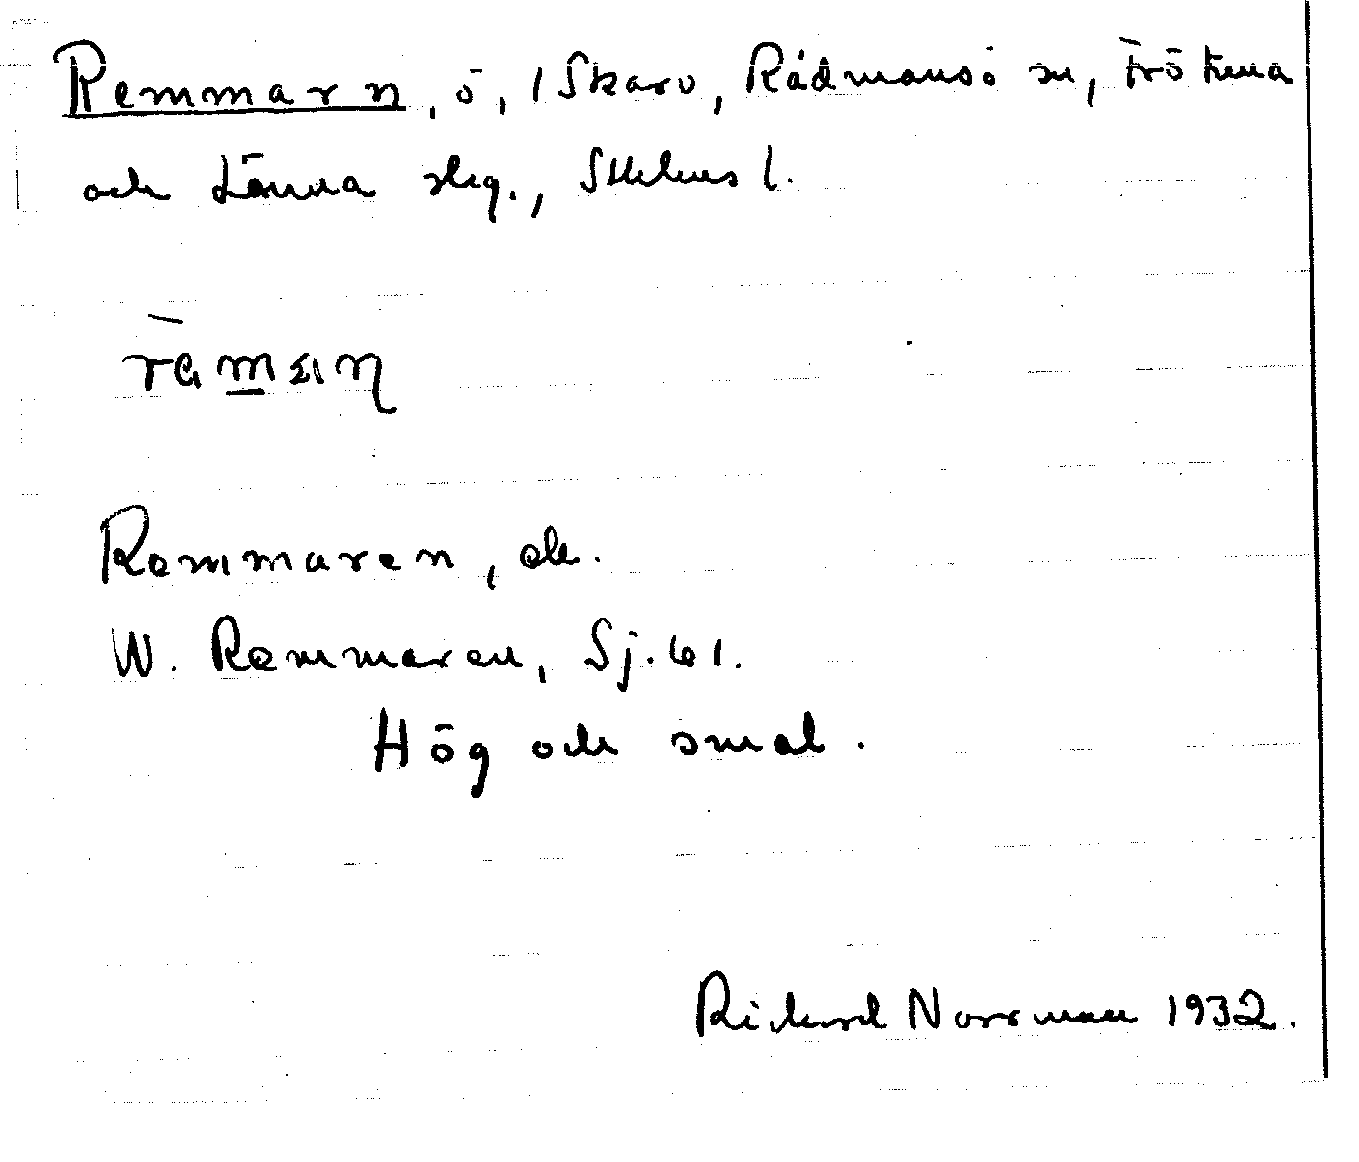 Remmarn, ö, i Skarv, Rådmansö sn, Frötuna
och Länna slg., Sthlms l.
Remmaren, ek.
W. Remmaren, Sj. 61.
Hög och smal.
Rickard Norrman 1932.